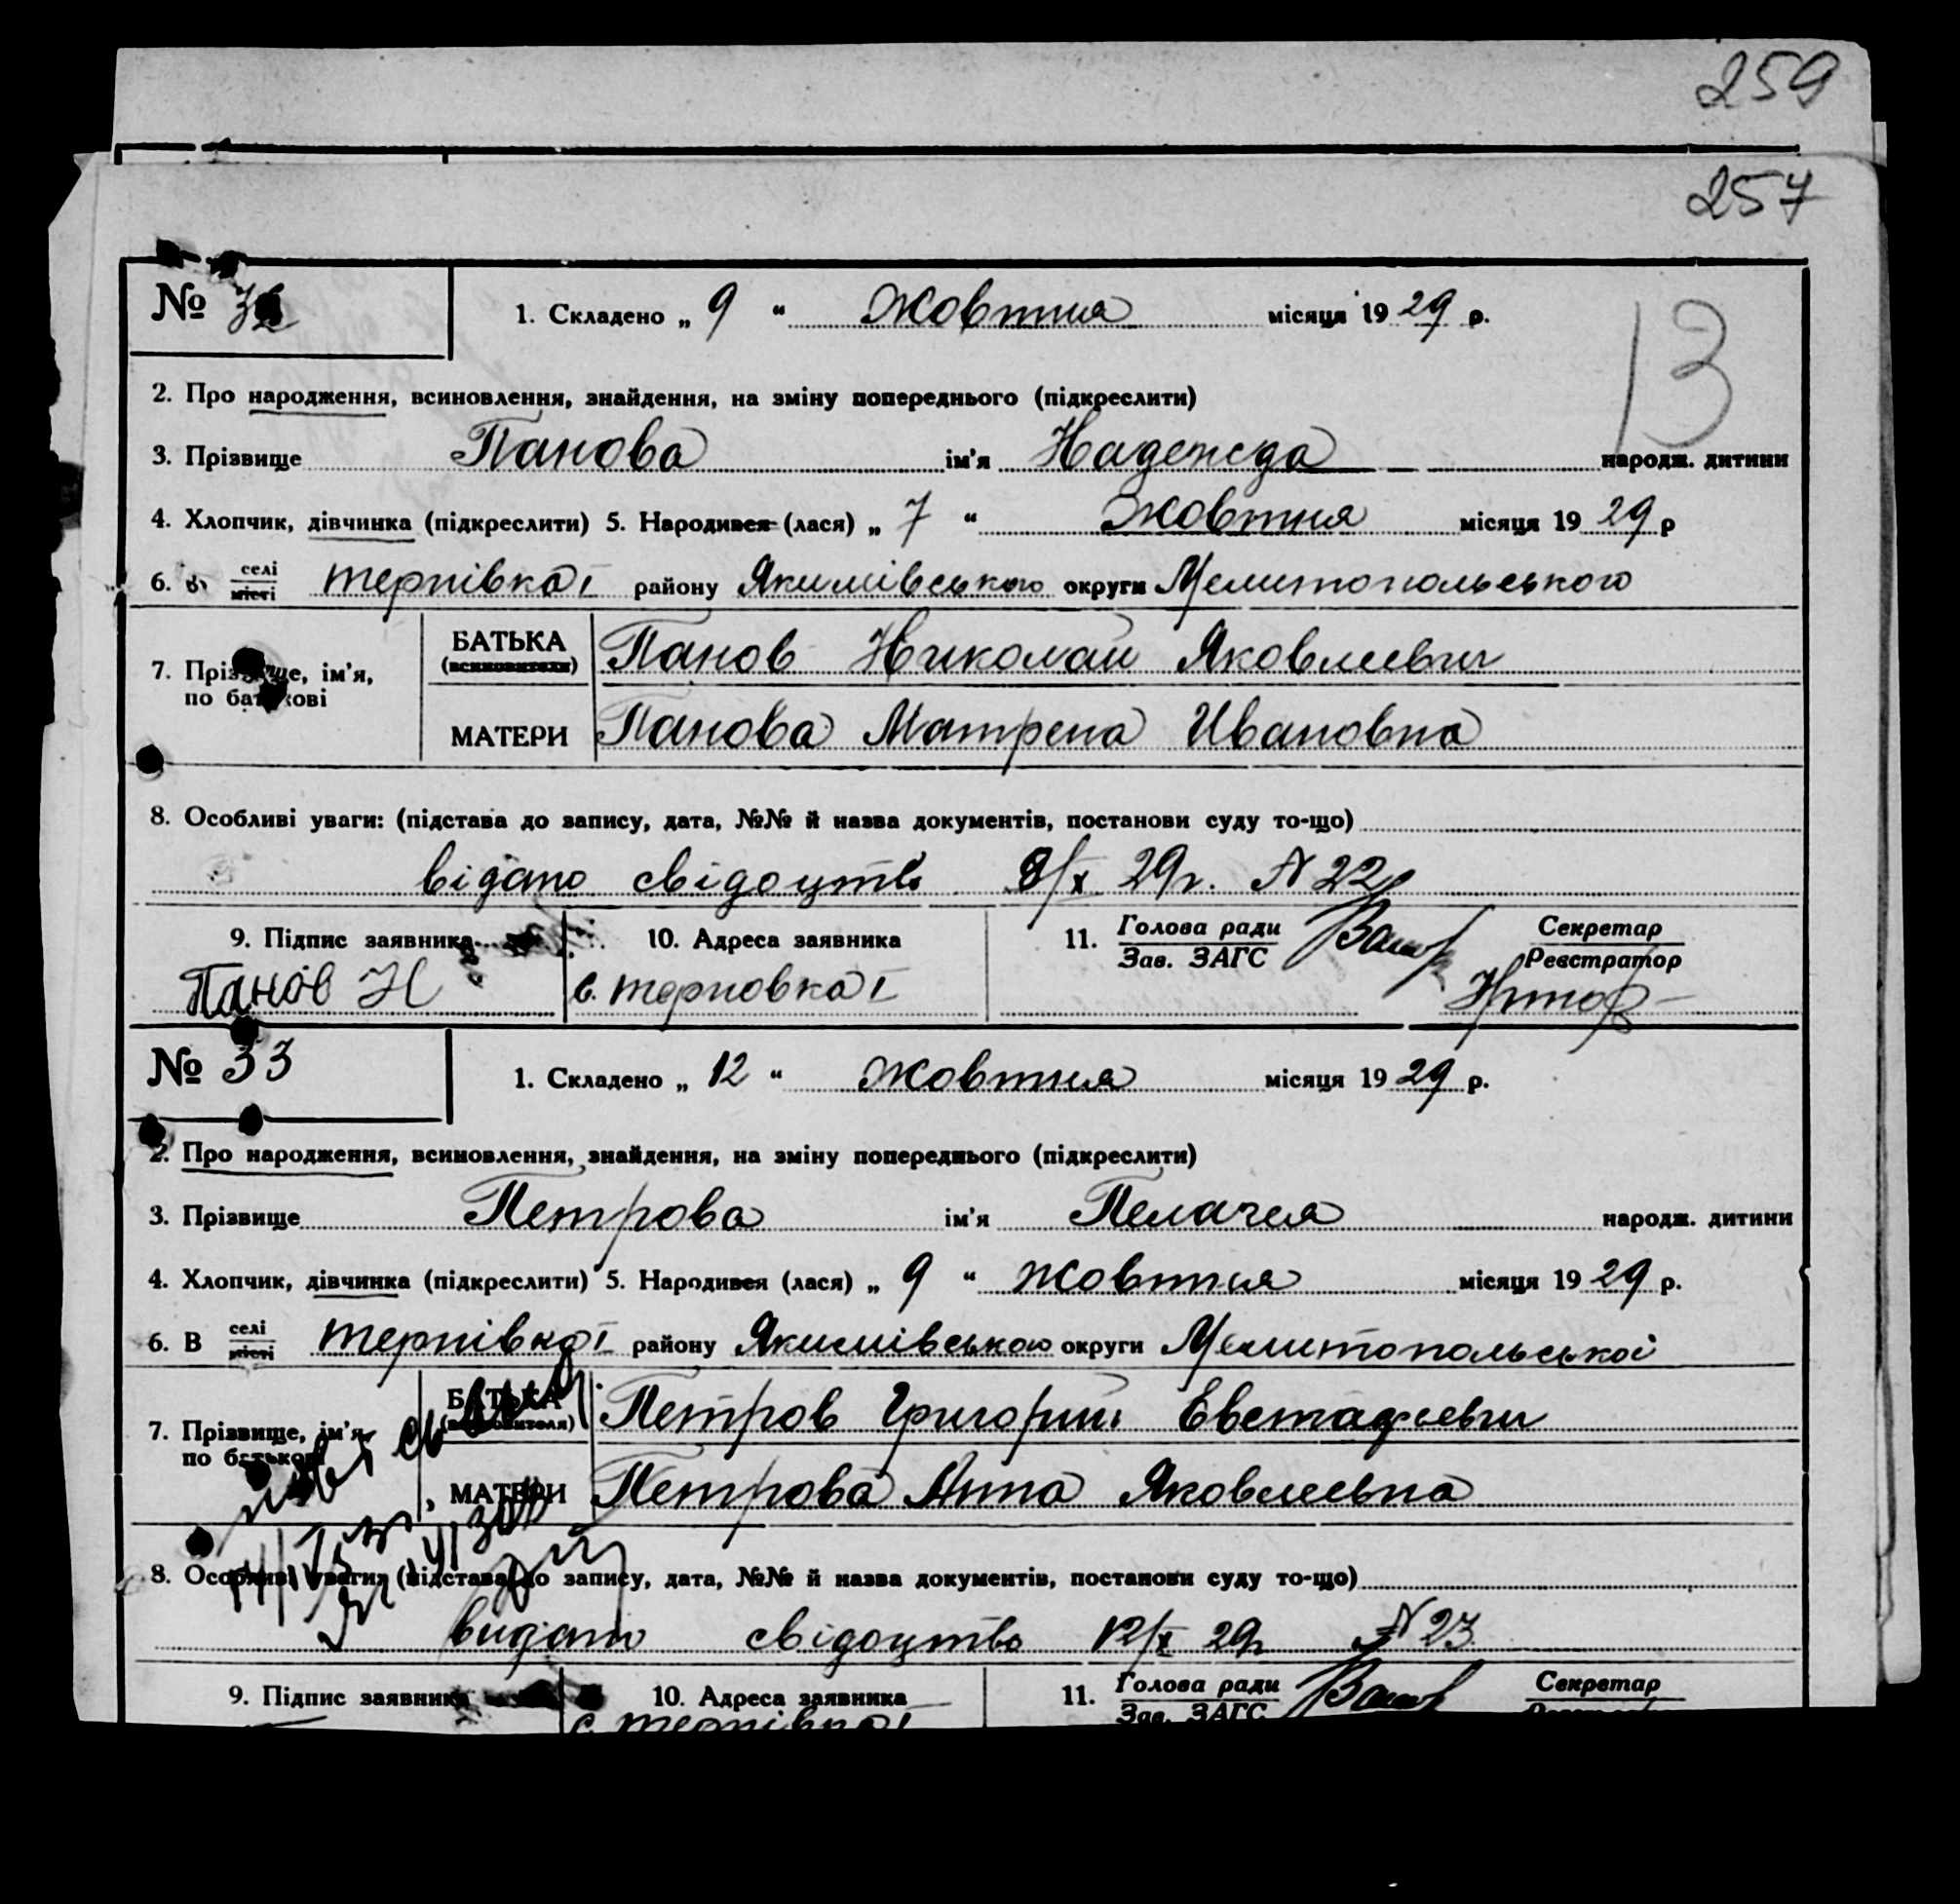 259
257
№ 32
1. Складено „ 9 “ Жовтня місяця 19 29 р.
13
2. Про народження, всиновлення, знайдення, на зміну попереднього (підкреслити)
3. Прізвище Панова ім'я Надежда народж. дитини
4. Хлопчик, дівчинка (підкреслити) 5. Народився (лася) „ 7 “ Жовтня місяця 19 29 р
6. в селі місті Тернівка І району Якимівського округи Мелитопольського
7. Прізвище, ім'я, по батькові
БАТЬКА (всиновителя) Панов Николай Яковлевич
МАТЕРИ Панова Матрена Ивановна
8. Особливі уваги: (підстава до запису, дата, №№ й назва документів, постанови суду то-що)
відано свідоцтво 8/X 29р. N 22
9. Підпис заявника 10. Адреса заявника 11. Голова ради Зав. ЗАГС Секретар Реєстратор
Панов Н с. Терновка І
№ 33
1. Складено „ 12 “ Жовтня місяця 19 29 р.
2. Про народження, всиновлення, знайдення, на зміну попереднього (підкреслити)
3. Прізвище Петрова ім'я Пелагея народж. дитини
4. Хлопчик, дівчинка (підкреслити) 5. Народився (лася) „ 9 “ Жовтня місяця 19 29 р.
6. В селі місті Тернівка І району Якимівського округи Мелитопольської
7. Прізвище, ім'я, по батькові
БАТЬКА (всиновителя) Петров Григорий Евстафьевич
МАТЕРИ Петрова Анна Яковлевна
8. Особливі уваги: (підстава до запису, дата, №№ й назва документів, постанови суду то-що)
видано свідоцтво 12/X 29р N 23
9. Підпис заявника 10. Адреса заявника 11. Голова ради Зав. ЗАГС Секретар
с. Тернівка І